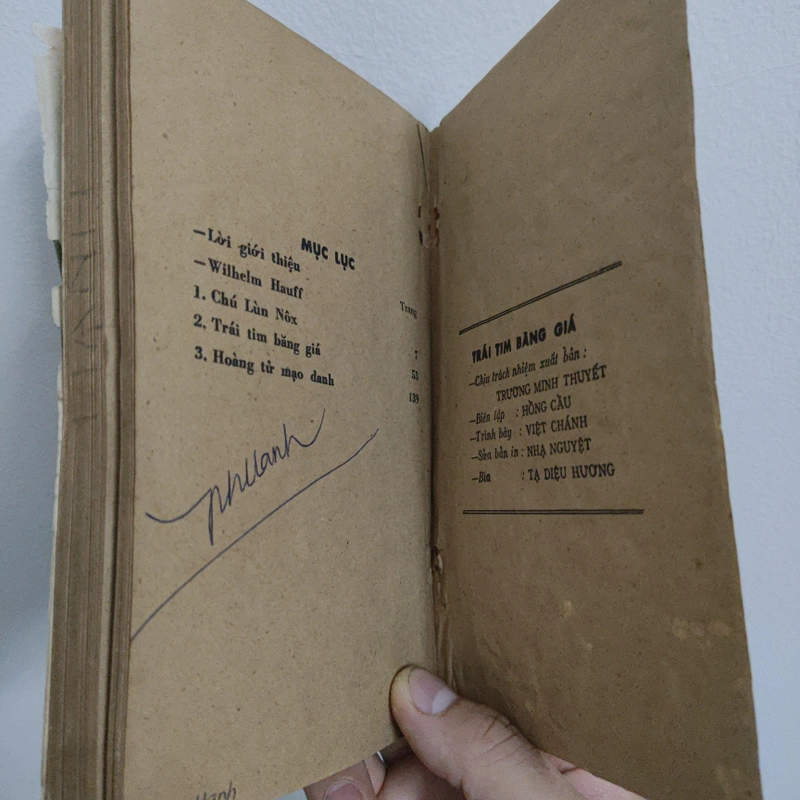 MỤC LỤC
Trang
—Lời giới thiệu
—Wilhelm Hauff
1. Chú Lùn Nôx 7
2. Trái tim băng giá 53
3. Hoàng tử mạo danh 139
TRÁI TIM BĂNG GIÁ
—Chịu trách nhiệm xuất bản :
TRƯƠNG MINH THUYẾT
—Biên tập : HỒNG CẦU
—Trình bày : VIỆT CHÁNH
—Sửa bản in : NHẠ NGUYỆT
—Bìa : TẠ DIỆU HƯƠNG